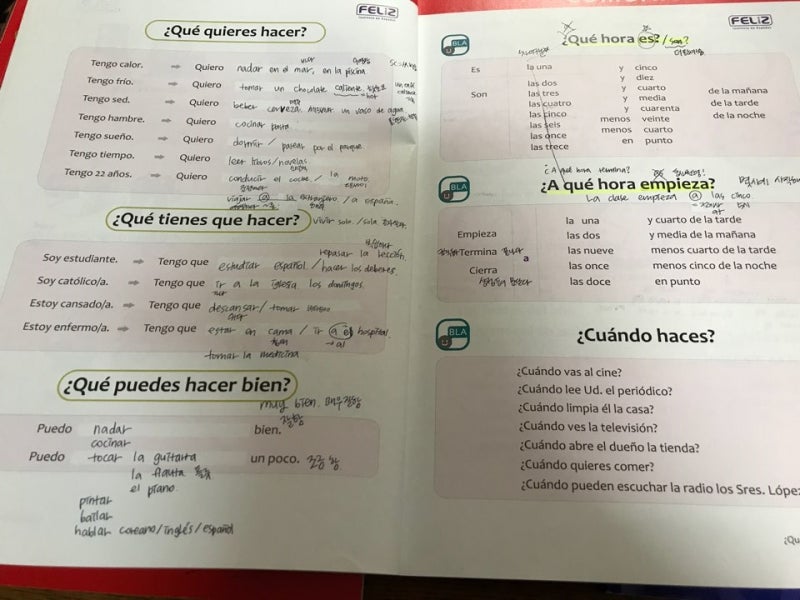 FELIZ
¿Qué quieres hacer?
Tengo calor. → Quiero nadar en el mar, en la piscina
Tengo frío. → Quiero tomar un chocolate caliente
=hot
Tengo sed. → Quiero beber cerveza, un vaso de agua
Tengo hambre. → Quiero cocinar pasta
Tengo sueño. → Quiero dormir / pasear por el parque
Tengo tiempo. → Quiero leer /novelas
Tengo 22 años. → Quiero conducir el coche / la moto.
viajar a la / a españa.
¿Qué tienes que hacer?
vivir sola / sola
repasar la lección.
Soy estudiante. → Tengo que estudiar español / hacer los deberes.
Soy católico/a. → Tengo que ir a la iglesia los domingos.
Estoy cansado/a. → Tengo que descansar / tomar
Estoy enfermo/a. → Tengo que estar en cama / ir a el hospital.
→ al
tomar la medicina
¿Qué puedes hacer bien?
muy bien. 매우 잘함
Puedo nadar bien.
cocinar
Puedo tocar la guitarra un poco. 조금 함
la flauta
el piano.
pintar
bailar
hablar coreano/inglés/español
FELIZ
BLA
¿Qué hora es? / son?
Es la una y cinco
y diez
Son las dos y cuarto de la mañana
las tres y media de la tarde
las cuatro y cuarenta de la noche
las cinco menos veinte
las seis menos cuarto
las once en punto
las trece
¿A qué hora termina?
BLA
¿A qué hora empieza?
La clase empieza a las cinco
at
la una y cuarto de la tarde
Empieza las dos y media de la mañana
Termina a las nueve menos cuarto de la tarde
Cierra las once menos cinco de la noche
las doce en punto
BLA
¿Cuándo haces?
¿Cuándo vas al cine?
¿Cuándo lee Ud. el periódico?
¿Cuándo limpia él la casa?
¿Cuándo ves la televisión?
¿Cuándo abre el dueño la tienda?
¿Cuándo quieres comer?
¿Cuándo pueden escuchar la radio los Sres. López
¿Qu